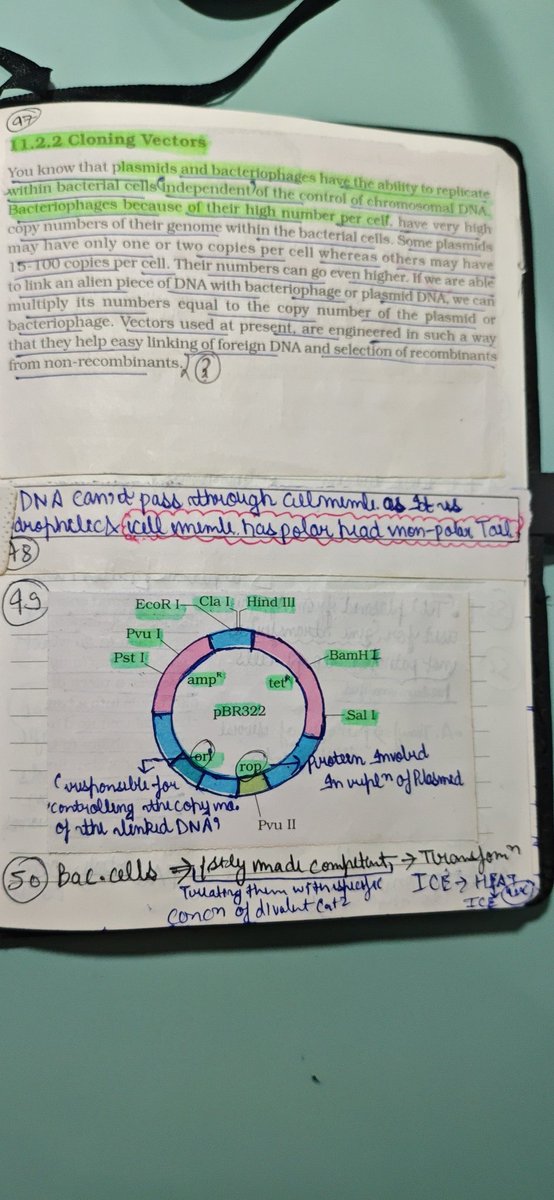 47
11.2.2 Cloning Vectors
You know that plasmids and bacteriophages have the ability to replicate
within bacterial cells independent of the control of chromosomal DNA.
Bacteriophages because of their high number per cell, have very high
copy numbers of their genome within the bacterial cells. Some plasmids
may have only one or two copies per cell whereas others may have
15-100 copies per cell. Their numbers can go even higher. If we are able
to link an alien piece of DNA with bacteriophage or plasmid DNA, we can
multiply its numbers equal to the copy number of the plasmid or
bacteriophage. Vectors used at present, are engineered in such a way
that they help easy linking of foreign DNA and selection of recombinants
from non-recombinants.
DNA can't pass through cell memb. as it is
cell memb. has polar head non-polar Tail
48
49
EcoR I Cla I Hind III
Pvu I
Pst I
BamH I
ampR
tetR
pBR322
Sal I
ori
rop
responsible for
controlling the copy no.
of the linked DNA
Protein Involved
In repln of Plasmid
Pvu II
50 Bac. cells ⇒ 1stly made competent → Transformn
Treating them with specific
concn of divalent Ca+2
ICE → HEAT
ICE